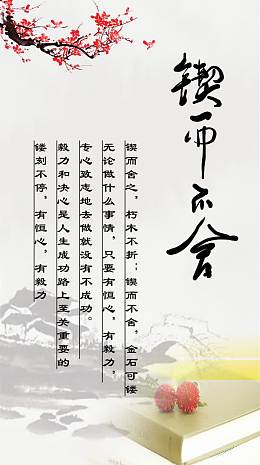 锲而不舍
锲而舍之，朽木不折；锲而不舍，金石可镂
无论做什么事情，只要有恒心，有毅力，
专心致志地去做就没有不成功。
毅力和决心是人生成功路上至关重要的
镂刻不停，有恒心，有毅力